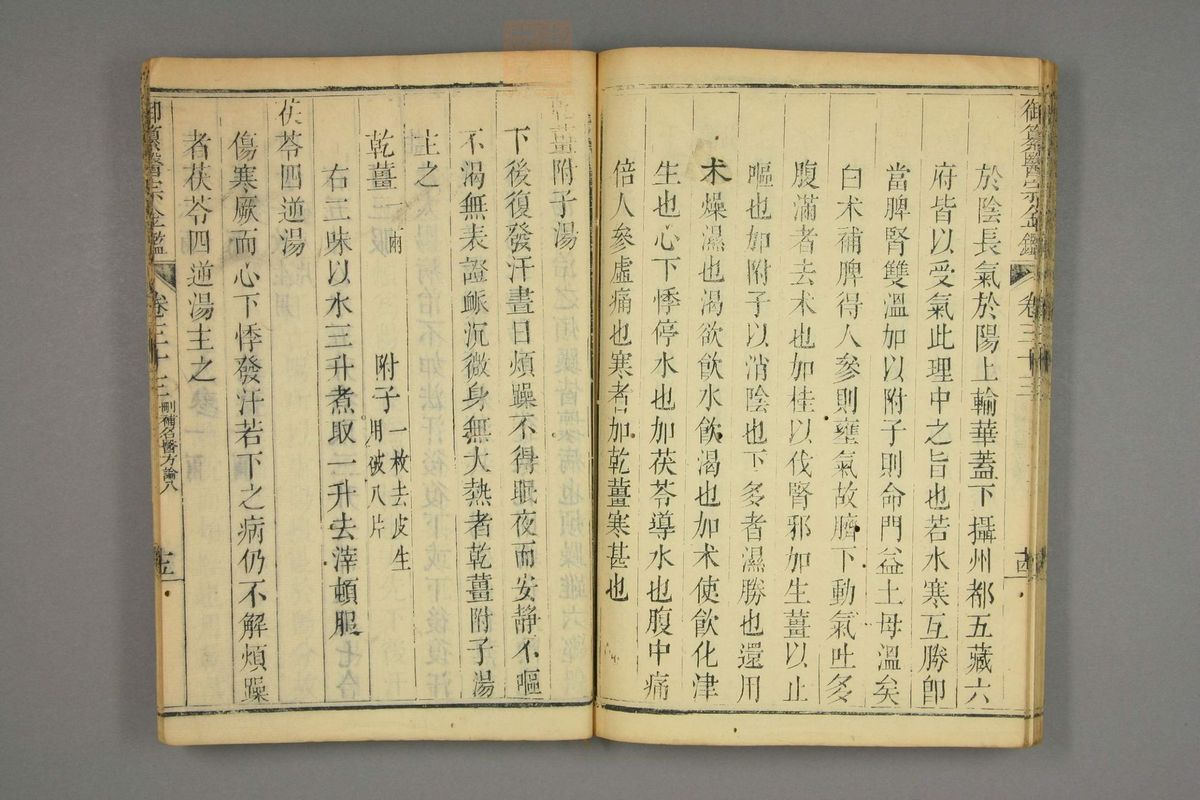 御纂醫宗金鑑 卷三十三 十四
於陰長氣於陽上輸華蓋下攝州都五藏六
府皆以受氣此理中之旨也若水寒互勝卽
當脾腎雙溫加以附子則命門益土母溫矣
白术補脾得人參則壅氣故臍下動氣吐多
腹滿者去术也加桂以伐腎邪加生薑以止
嘔也加附子以消陰也下多者濕勝也還用
术燥濕也渴欲飲水飲渴也加术使飲化津
生也心下悸停水也加茯苓導水也腹中痛
倍人參虛痛也寒者加乾薑寒甚也
乾薑附子湯
下後復發汗晝日煩躁不得眠夜而安靜不嘔
不渴無表證脈沉微身無大熱者乾薑附子湯
主之
乾薑一兩 附子一枚去皮生用破八片
右五味以水三升煮取一升去滓頓服
茯苓四逆湯
傷寒厥而心下悸發汗若下之病仍不解煩躁
者茯苓四逆湯主之
御纂醫宗金鑑 卷三十三 刪補名醫方論八 十五